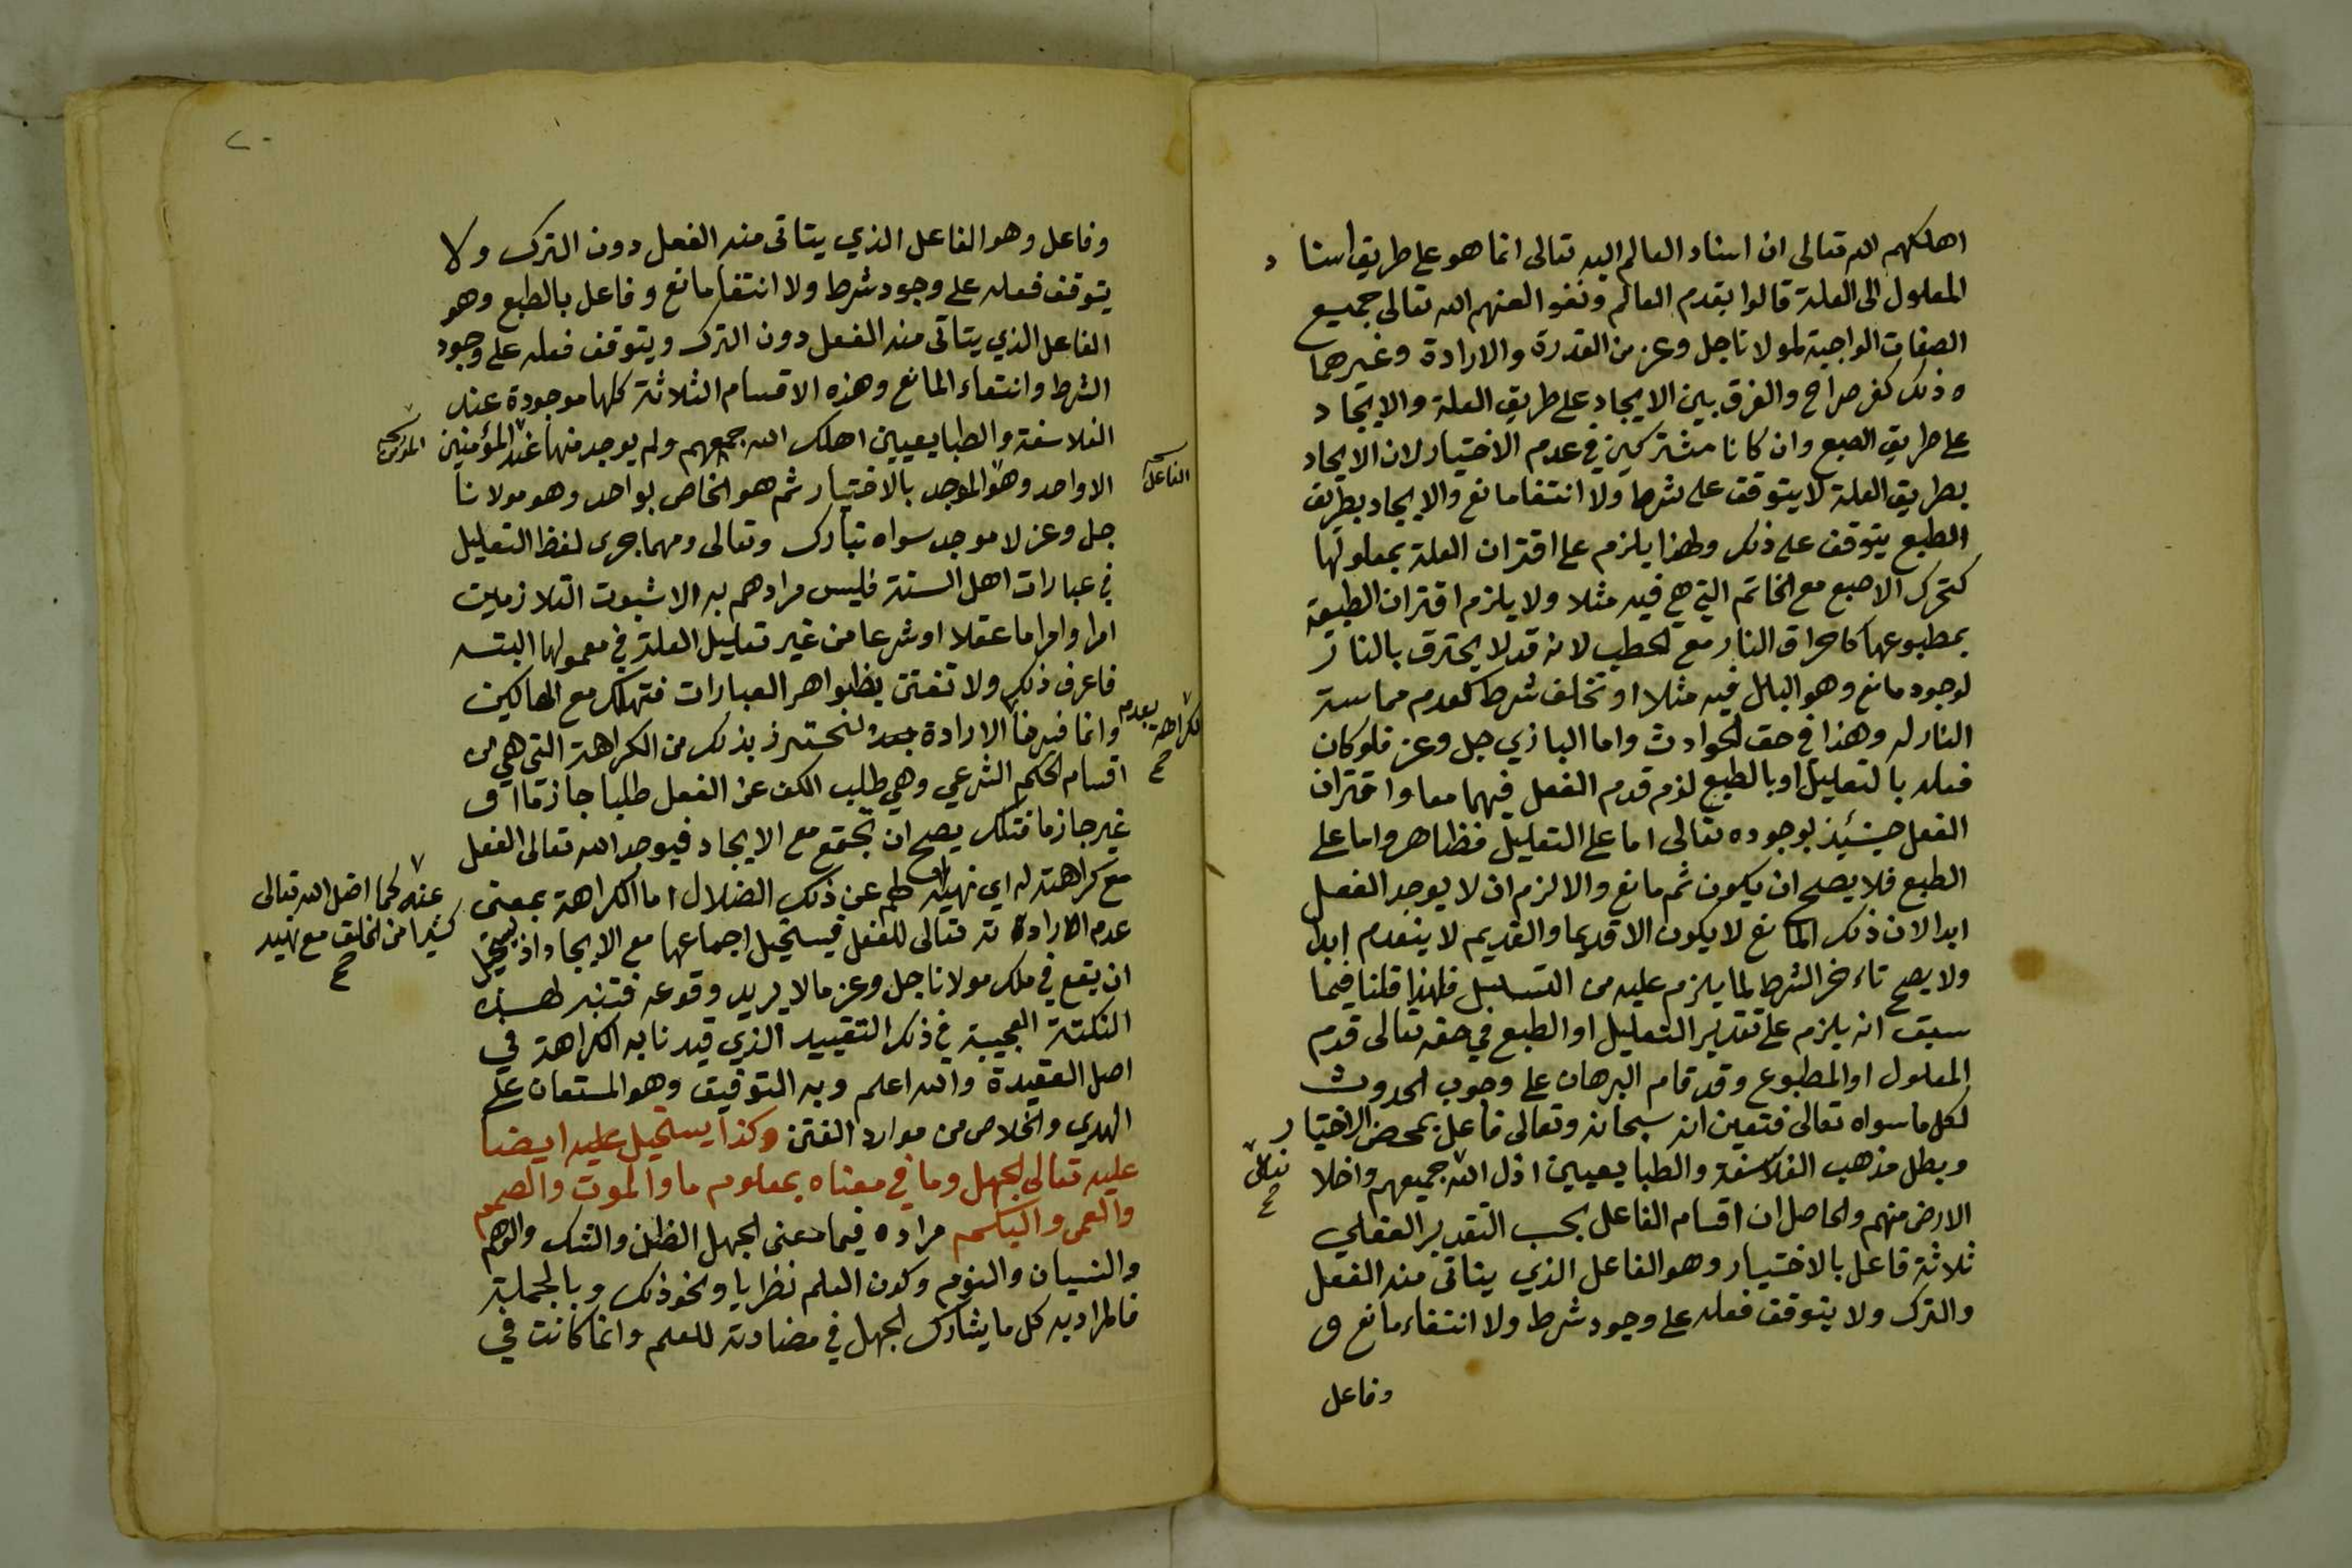 اهلكهم الله تعالى ان اسناد العالم اليه تعالى انما هو على طريق اسناد
المعلول الى العلة قالوا بقدم العالم ونفوا لعنهم الله تعالى جميع
الصفات الواجبة لمولانا جل وعز من القدرة والارادة وغيرهما
وذلك كفر صراح والفرق بين الايجاد على طريق العلة والايجاد
على طريق الطبع وان كانا مشتركين في عدم الاختيار لان الايجاد
بطريق العلة لا يتوقف على شرط ولا انتفا مانع والايجاد بطريق
الطبع يتوقف على ذلك ولهذا يلزم على اقتران العلة بمعلولها
كتحرك الاصبع مع الخاتم التي هي فيه مثلا ولا يلزم اقتران الطبيعة
بمطبوعها كاحراق النار مع الحطب لانه قد لا يحترق بالنار
لوجود مانع وهو البلل فيه مثلا او تخلف شرط كعدم مماسة
النار له وهذا في حق الحوادث واما الباري جل وعز فلو كان
فعله بالتعليل او بالطبع لزم قدم الفعل فيهما معا واقتران
الفعل حينئيذ بوجوده تعالى اما على التعليل فظاهر واما على
الطبع فلا يصح ان يكون ثم مانع والا لزم ان لا يوجد الفعل
ابدا لان ذلك المانع لا يكون الا قديما والقديم لا ينعدم ابدا
ولا يصح تاءخر الشرط لما يلزم عليه من التسلسل فلهذا قلنا فيما
سبق انه يلزم على تقدير التعليل او الطبع في حقه تعالى قدم
المعلول او المطبوع وقد قام البرهان على وجوب الحدوث
لكل ما سواه تعالى فتعين انه سبحانه وتعالى فاعل بمحض الاختيار
وبطل مذهب الفلاسفة والطبايعيين اذل الله جميعهم واخلا
تعالى
صح
الارض منهم والحاصل ان اقسام الفاعل بحسب التقدير العقلي
ثلاثة فاعل بالاختيار وهو الفاعل الذي يتاتى منه الفعل
والترك ولا يتوقف فعله على وجود شرط ولا انتفاء مانع و
وفاعل
٢٠
وفاعل وهو الفاعل الذي يتاتى منه الفعل دون الترك ولا
يتوقف فعله على وجود شرط ولا انتفا مانع وفاعل بالطبع وهو
الفاعل الذي يتاتى منه الفعل دون الترك ويتوقف فعله على وجود
الشرط وانتفاء المانع وهذه الاقسام الثلاثة كلها موجودة عند
الفلاسفة والطبايعيين اهلك الله جمعهم ولم يوجد منها عند المؤمنين
الا واحد وهو الموجد بالاختيار ثم هو الخاص بواحد وهو مولانا
الفاعل
جل وعز لا موجد سواه تبارك وتعالى ومهما جرى لفظ التعليل
في عبارات اهل السنة فليس مرادهم به الا ثبوت التلازم بين
امر وامر اما عقلا او شرعا من غير تعليل العلة في معمولها البتــه
فاعرف ذلك ولا تغتر بظواهر العبارات فتهلك مع الهالكين
وانما فيدنا الارادة لنحترز بذلك من الكراهة التي هي من
الكراهة بعدم
صح
اقسام الحكم الشرعي وهي طلب الكف عن الفعل طلبا جازما او
غير جازما فتلك يصح ان تجتمع مع الايجاد فيوجد الله تعالى الفعل
مع كراهته له اي نهيه لهم عن ذلك الضلال اما الكراهة بمعنى
عنه كما اضل الله تعالى
كثيرا من الخلق مع نهيه
صح
عدم الارادة له تعالى للفعل فيستحيل اجماعها مع الايجاد اذ يستحيل
ان يقع في ملك مولانا جل وعز ما لا يريد وقوعه فتنبه لهــذه
النكتة العجيبة في ذكر التقييد الذي قيدنا به الكراهة في
اصل العقيدة والله اعلم وبه التوفيق وهو المستعان على
الهدي والخلاص من موارد الفتن وكذا يستحيل عليه ايضا
عليه تعالى الجهل وما في معناه بمعلوم ما والموت والصمم
والعمى والبكــم مراده فيما معنى الجهل الظن والشك والوهم
والنسيان والنوم وكون العلم نظريا ونحو ذلك وبالجملة
فالمراد به كل ما يشارك الجهل في مضادته للعلم وانما كانت في